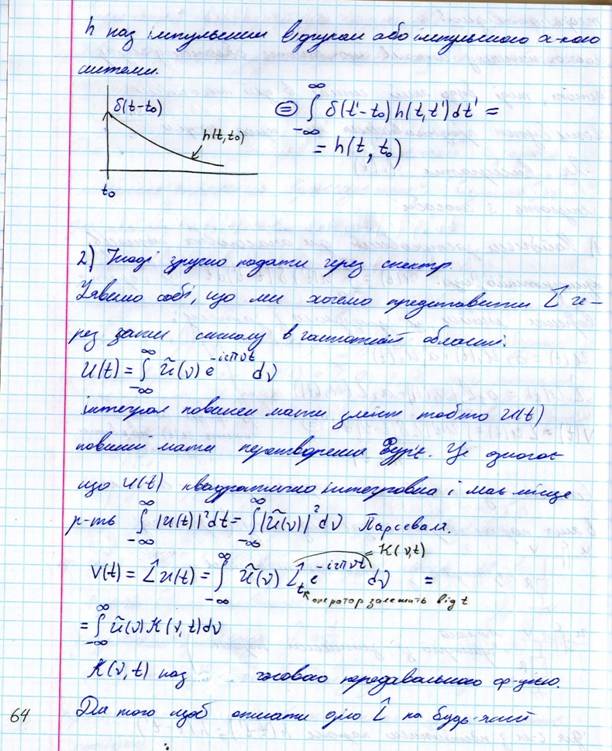 h наз імпульсним відгуком або імпульсного х-кою
системи.
δ(t-t₀)
h(t,t₀)
t₀
⊜ ∫_{-∞}^{∞} δ(t'-t₀) h(t,t') dt' =
= h(t, t₀)
2) Іноді зручно подати через спектр.
Уявимо собі, що ми хочемо представити L̂ че-
рез запис сигналу в частотній області.
U(t) = ∫_{-∞}^{∞} ũ(ν) e^{-i2πνt} dν
інтеграл повинен мати зміст тобто U(t)
повинні мати перетворення Фур'є. Це означає
що U(t) квадратично інтегровна і має місце
р-ть ∫_{-∞}^{∞} |u(t)|² dt = ∫_{-∞}^{∞} |ũ(ν)|² dν Парсеваля.
K(ν,t)
V(t) = L̂ u(t) = ∫_{-∞}^{∞} ũ(ν) L̂_t e^{-i2πνt} dν =
оператор залежить від t
= ∫_{-∞}^{∞} ũ(ν) K(ν,t) dν
K(ν,t) наз часовою передавальною ф-цією.
Для того щоб описати дію L̂ на будь-який
64